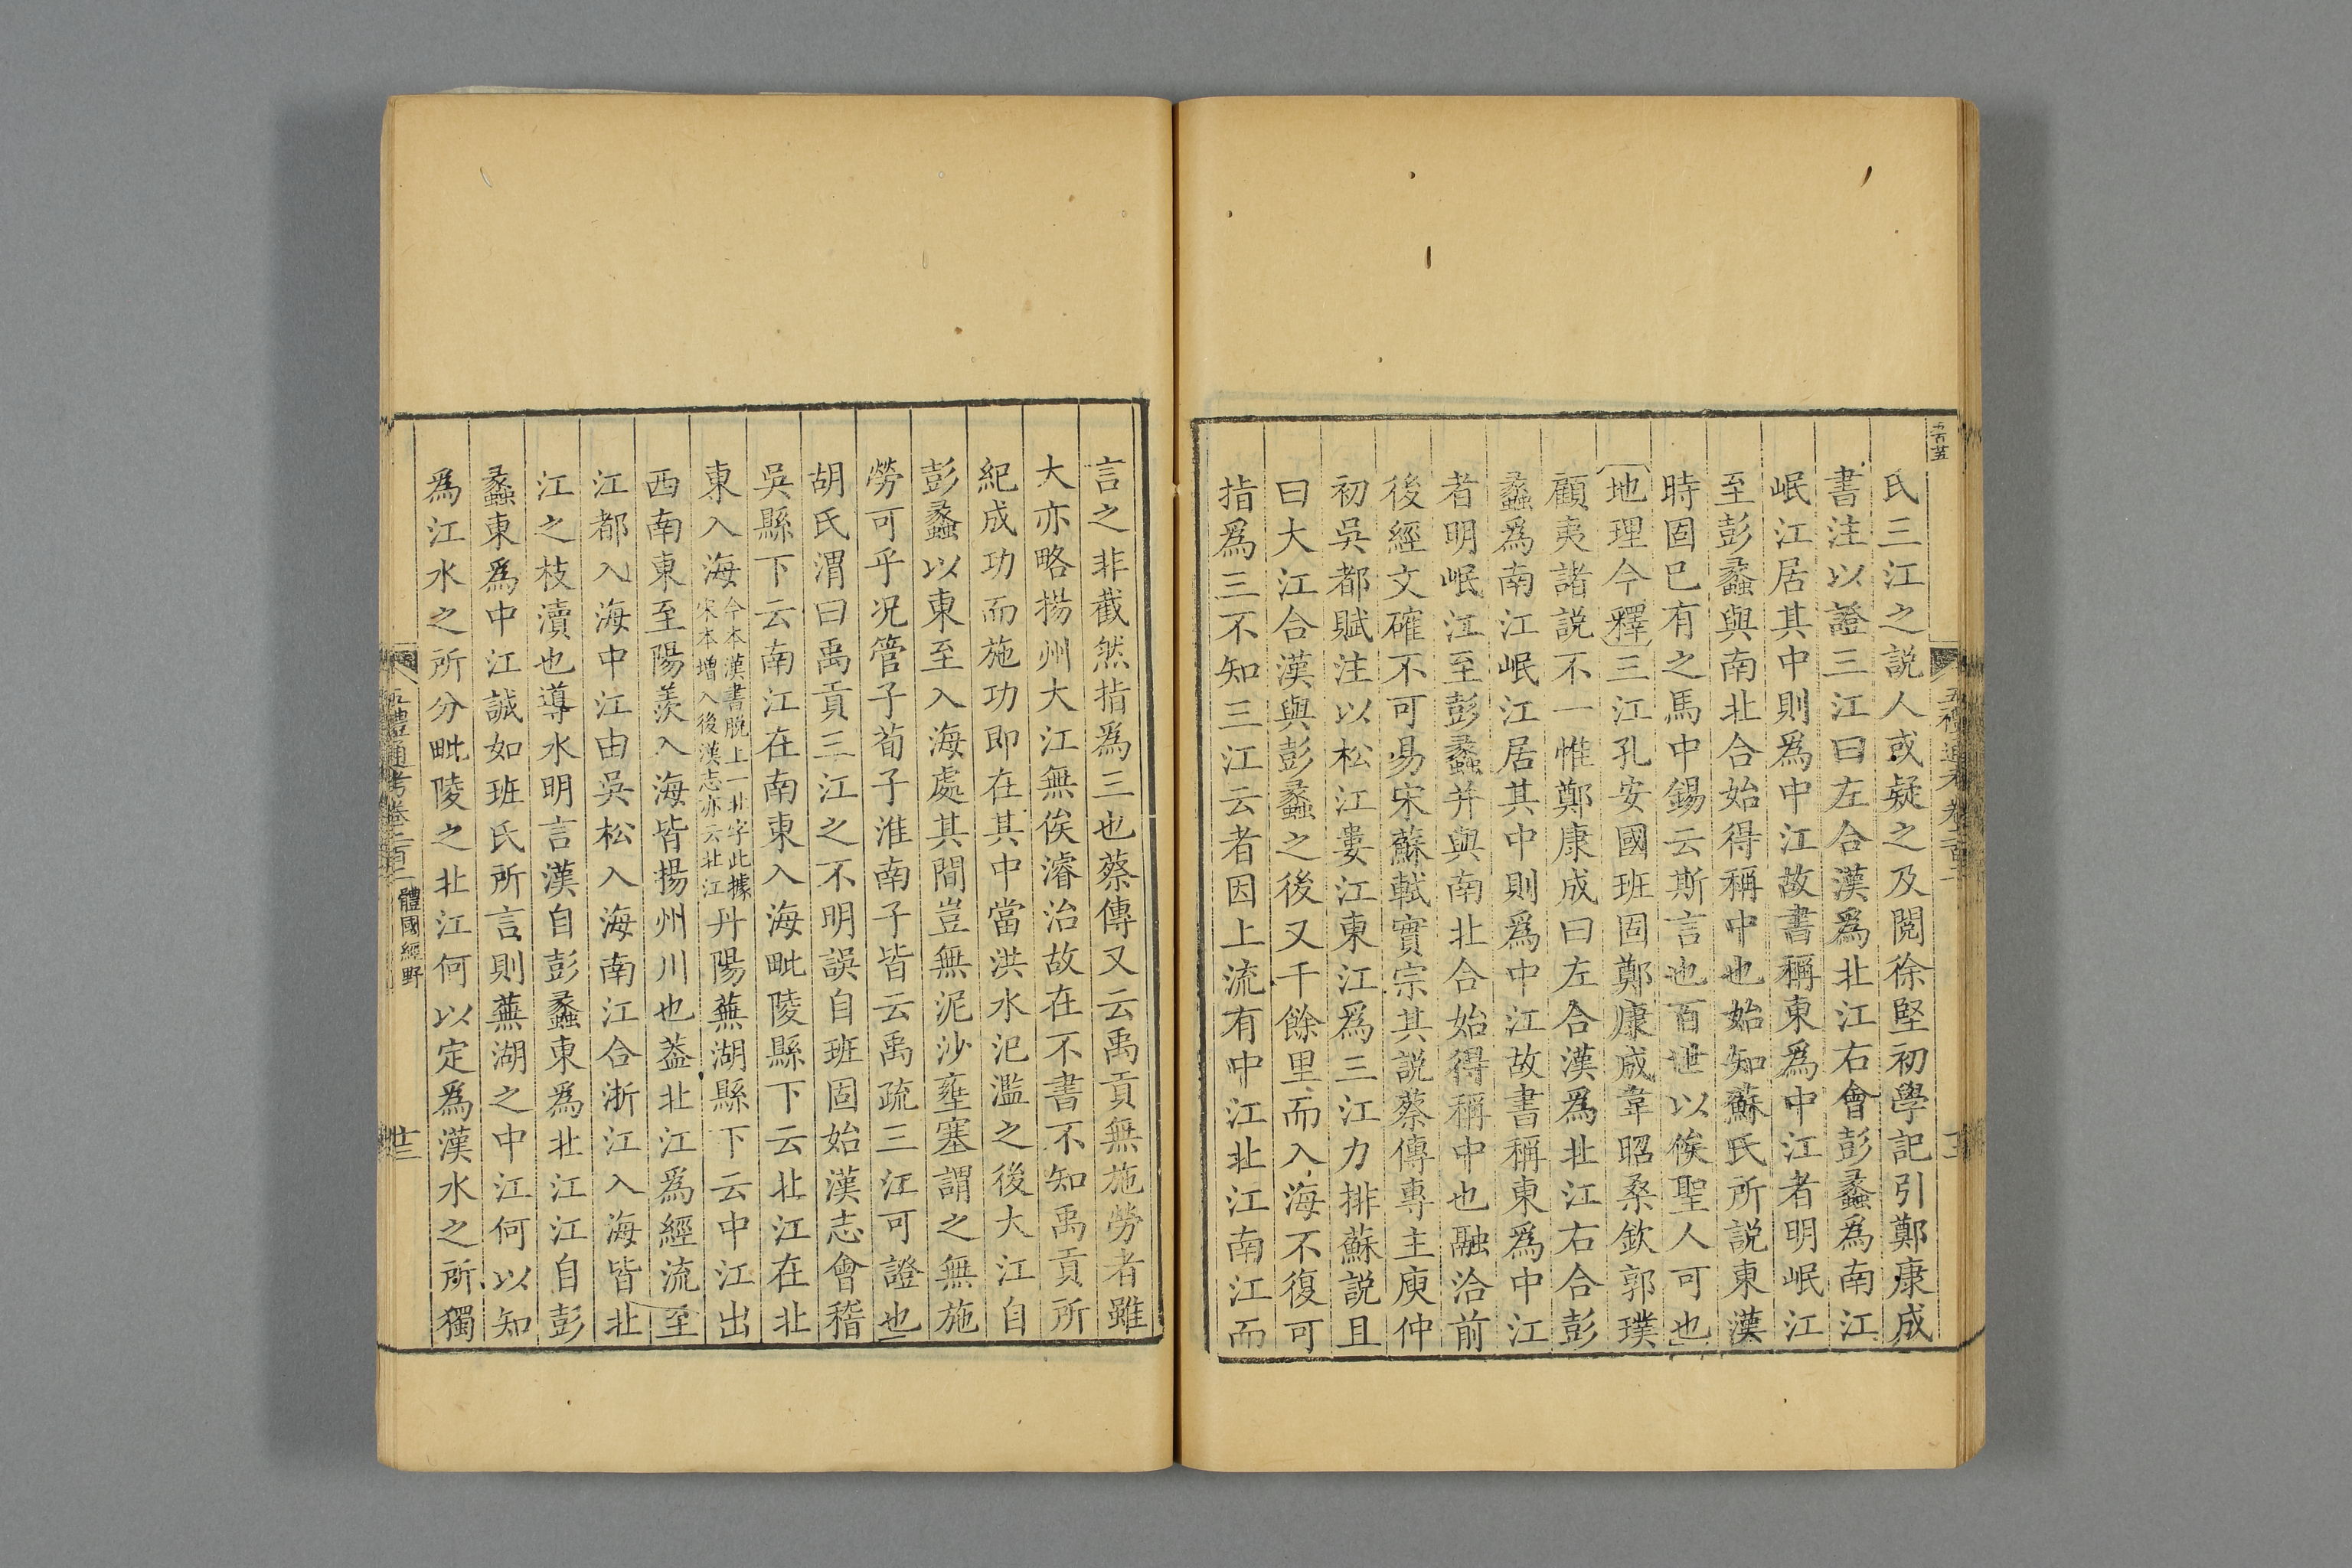 氏三江之説人或疑之及閲徐堅初學記引鄭康成
書注以證三江曰左合漢爲北江右會彭蠡爲南江
岷江居其中則爲中江故書稱東爲中江者明岷江
至彭蠡與南北合始得稱中也始知蘇氏所説東漢
時固已有之馬中錫云斯言也百世以俟聖人可也
地理今釋三江孔安國班固鄭康成韋昭桑欽郭璞
顧夷諸説不一惟鄭康成曰左合漢爲北江右合彭
蠡爲南江岷江居其中則爲中江故書稱東爲中江
者明岷江至彭蠡并與南北合始得稱中也融洽前
後經文確不可易宋蘇軾實宗其説蔡傳專主庾仲
初吳都賦注以松江婁江東江爲三江力排蘇説且
曰大江合漢與彭蠡之後又千餘里而入海不復可
指爲三不知三江云者因上流有中江北江南江而
言之非截然指爲三也蔡傳又云禹貢無施勞者雖
大亦略揚州大江無俟濬治故在不書不知禹貢所
紀成功而施功即在其中當洪水汜濫之後大江自
彭蠡以東至入海處其間豈無泥沙壅塞謂之無施
勞可乎况管子荀子淮南子皆云禹疏三江可證也
胡氏渭曰禹貢三江之不明誤自班固始漢志會稽
吳縣下云南江在南東入海毗陵縣下云北江在北
東入海今本漢書脱上一北字此據
宋本增入後漢志亦云北江丹陽蕪湖縣下云中江出
西南東至陽羡入海皆揚州川也葢北江爲經流至
江都入海中江由吳松入海南江合浙江入海皆北
江之枝瀆也導水明言漢自彭蠡東爲北江江自彭
蠡東爲中江誠如班氏所言則蕪湖之中江何以知
爲江水之所分毗陵之北江何以定爲漢水之所獨
五禮通考卷二百二 體國經野